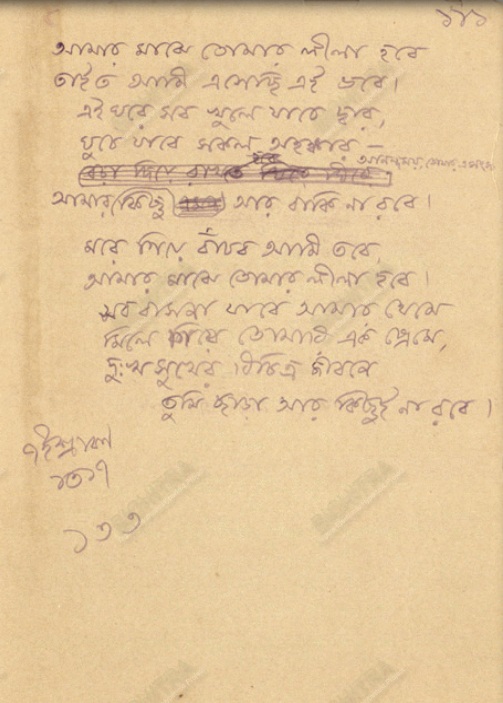 ১৭১
আমার মাঝে তোমার লীলা হবে
তাইত আমি এসেছি এই ভবে।
এই ঘরে সব খুলে যাবে দ্বার,
ঘুচে যাবে সকল অহঙ্কার –
আনন্দময়, তোমার এ সংসারে
আমার কিছু আর বাকি না রবে।
মরে গিয়ে বাঁচব আমি তবে,
আমার মাঝে তোমার লীলা হবে।
সব বাসনা যাবে আমার থেমে
মিলে গিয়ে তোমারি এক প্রেমে,
দুঃখ সুখের বিচিত্র জীবনে
তুমি ছাড়া আর কিছুই না রবে।
৭ই শ্রাবণ
১৩১৭
১৩৩